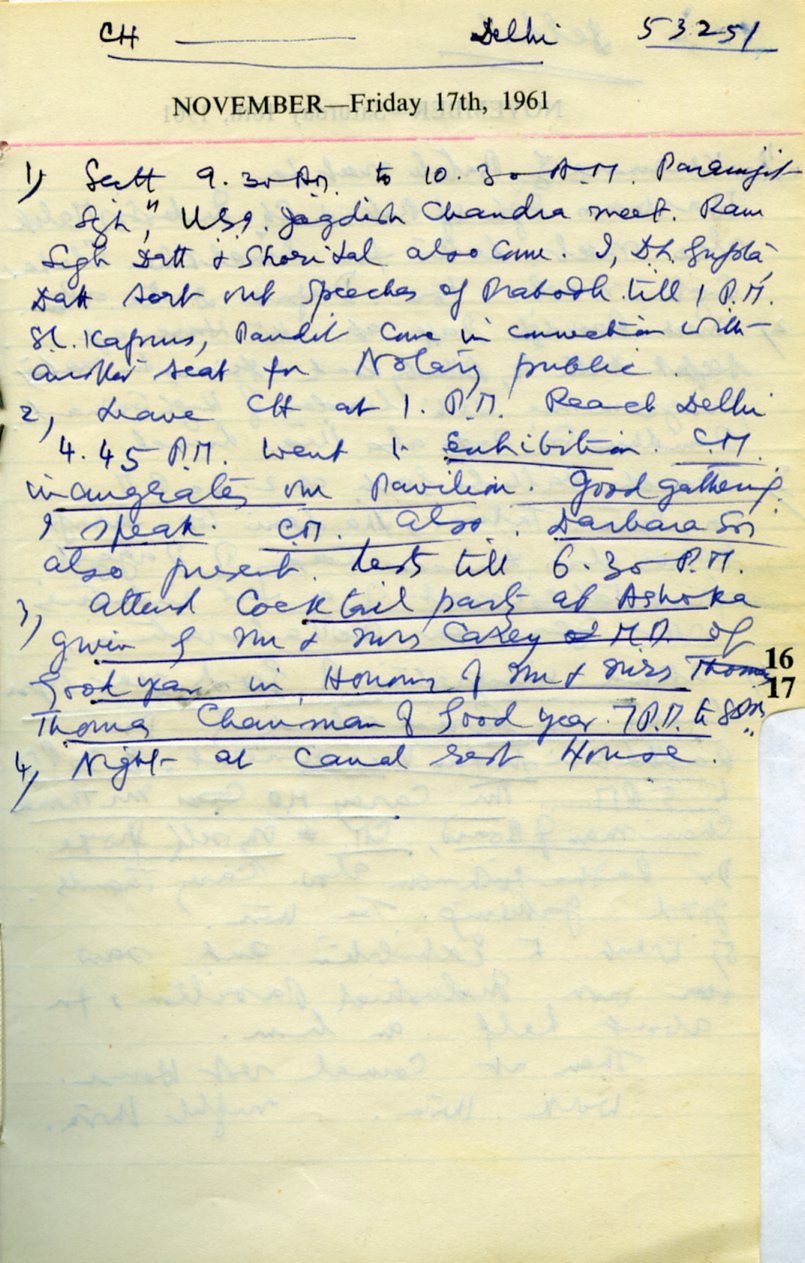 CH ——— Delhi 53251
NOVEMBER—Friday 17th, 1961
1) 9.30 AM. to 10.30 A.M. Paramjit
Sgh, Jagdish Chandra meet. Ram
Sigh Datt & Shorilal also come. I, D.L. Gupta,
Datt sort out speeches of Prabodh till 1 P.M.
Sh. Kapur, Pandit come in connection with
another seat for Notary public.
2, Leave CH at 1. P.M. Reach Delhi
4.45 P.M. went to Exhibition. C.M.
inaugrates our Pavilion. Good gathering.
I speak. C.M. also. Darbara
also present. till 6.30 P.M.
3, Attend Cocktail party at Ashoka
given by Mr & Mrs Carey M.D. of
Good year in Honour of Mr & Mrs Thomas
16
17
Thomas Chairman of Good year. 7 P.M. to 8 P.M.
4, Night at Canal rest House.